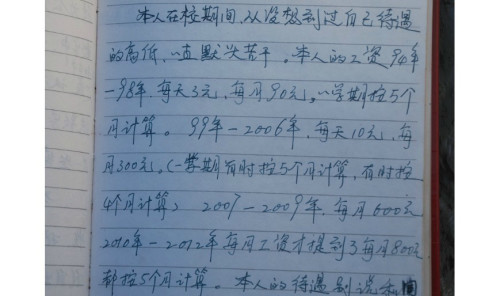 本人在校期间,从没想到过自己待遇
的高低,一直默失苦干。本人的工资94年
-98年,每天3元,每月90元。一学期按5个
月计算。99年-2006年,每天10元,每
月300元。(一学期有时按5个月计算,有时按
4个月计算) 2007-2009年,每月600元
2010年-2012年每月工资才提到了每月800元
都按5个月计算。本人的待遇别说和